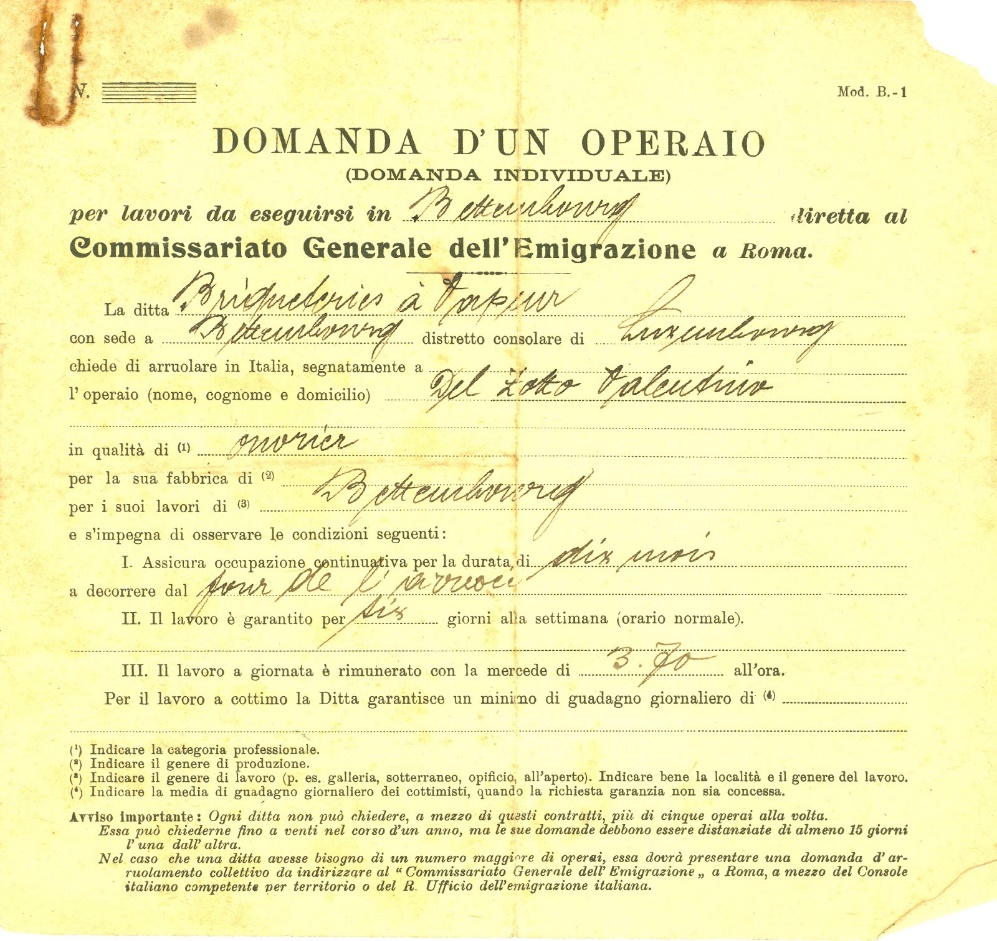 N.
Mod. B.-1
DOMANDA D'UN OPERAIO
(DOMANDA INDIVIDUALE)
per lavori da eseguirsi in Bettembourg diretta al
Commissariato Generale dell'Emigrazione a Roma.
La ditta Briqueteries à Vapeur
con sede a Bettembourg distretto consolare di Luxembourg
chiede di arruolare in Italia, segnatamente a
l'operaio (nome, cognome e domicilio) Del Zotto Valentino
in qualità di (1)
per la sua fabbrica di (2)
Bettembourg
per i suoi lavori di (3)
e s'impegna di osservare le condizioni seguenti:
I. Assicura occupazione continuativa per la durata di dix mois
a decorrere dal jour de l'
II. Il lavoro è garantito per six giorni alla settimana (orario normale).
III. Il lavoro a giornata è rimunerato con la mercede di 3.70 all'ora.
Per il lavoro a cottimo la Ditta garantisce un minimo di guadagno giornaliero di (4)
(1) Indicare la categoria professionale.
(2) Indicare il genere di produzione.
(3) Indicare il genere di lavoro (p. es. galleria, sotterraneo, opificio, all'aperto). Indicare bene la località e il genere del lavoro.
(4) Indicare la media di guadagno giornaliero dei cottimisti, quando la richiesta garanzia non sia concessa.
Avviso importante: Ogni ditta non può chiedere, a mezzo di questi contratti, più di cinque operai alla volta.
Essa può chiederne fino a venti nel corso d'un anno, ma le sue domande debbono essere distanziate di almeno 15 giorni
l'una dall'altra.
Nel caso che una ditta avesse bisogno di un numero maggiore di operai, essa dovrà presentare una domanda d'ar-
ruolamento collettivo da indirizzare al "Commissariato Generale dell'Emigrazione„ a Roma, a mezzo del Console
italiano competente per territorio o del R. Ufficio dell'emigrazione italiana.